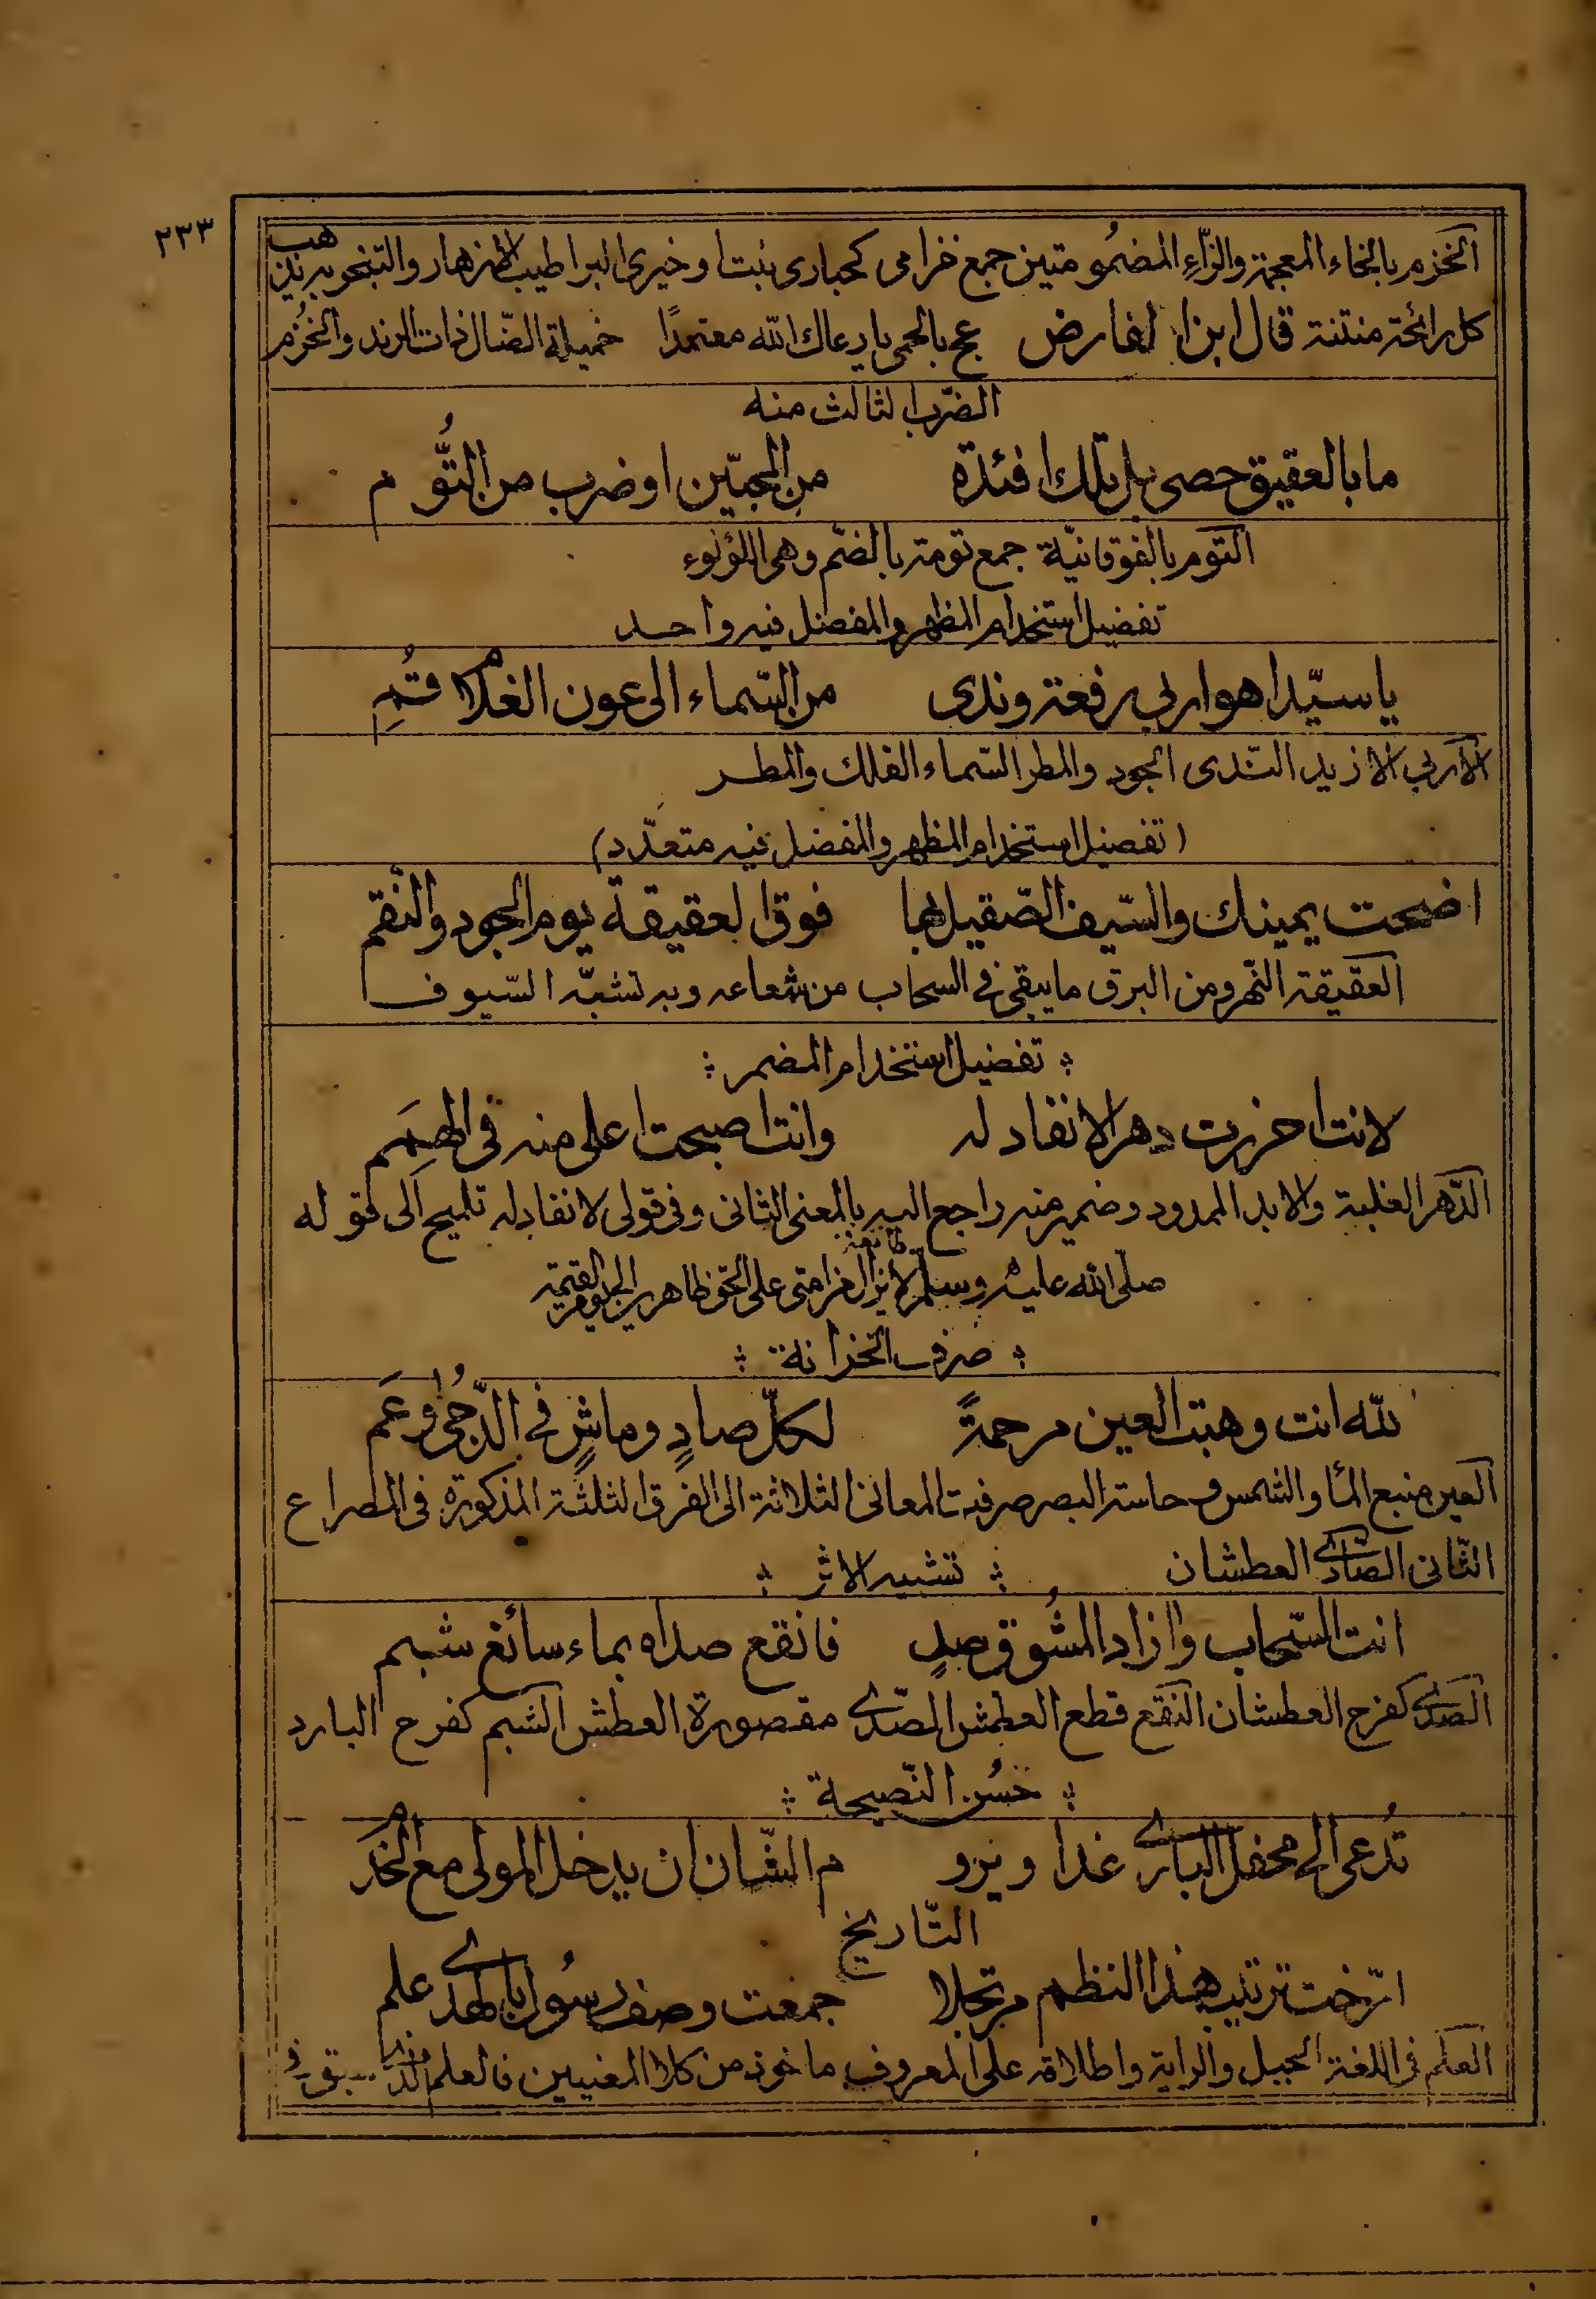 ٢٣٣
الخزم بالخاء المعجمة والزاء المضمومتين جمع خزامى كحبارى نبت او خيرى البر اطيب الازهار والتبخر به يذهب
كل رائحة منتنة قال ابن الفارض عج بالحمى يا رعاك الله معتمدًا خميلة الضال ذات الرند والخُزُم
الضرب الثالث منه
ما بالعقيق حصى بل تلك افئدة من المحبّين او ضرب من التُّوَم
التوم بالفوقانيّة جمع تومة بالضّم وهى اللؤلوء
تفضيل استخدام المظهر والمفضل فيه واحد
يا سيّدا هو اربى رفعة وندى من السّماء الى عون الغلام قُمِ
الاربى الازيد النّدى الجود والمطر السّماء الفلك والمطر
(تفضيل استخدام المظهر والمفضل فيه متعدّد)
اضحت يمينك والسّيف الصّقيل بها فوق العقيقة يوم الجود والنّقم
العقيقة النّهر ومن البرق ما يبقى فى السحاب من شعاعه وبه تشبّه السّيوف
تفضيل استخدام المضمر
لانت احرزت دهرا لا نفاد له وانت اصبحت اعلى منه فى الهِمَم
الدّهر الغلبة والابد الممدود وضمير منه راجع اليه بالمعنى الثانى وفى قولى لا نفاد له تلميح الى قوله
صلّى الله عليه وسلم لا يزال طائفة من امتى على الحق ظاهرين الى يوم القيمة
صرف الخزانة
لله انت وهبت العين مرحمةً لكلّ صادٍ وماشٍ فى الدّجُى وعَم
العين منبع الماء والشمس و حاسة البصر صرفت المعانى الثلاثة الى الفرق الثلثة المذكورة فى المصراع
الثّانى الصّادى العطشان تشبيه الاثر
انت السّحاب وازاد المشُوق صدٍ فانقع صداه بماء سائغ شبم
الصّدى كفرح العطشان النّقع قطع العطش الصّدى مقصورة العطش الشبم كفرح البارد
حُسن النّصيحة
تُدعى الى محفل البارى غدا ويرو م الشّان ان يدخل المولى مع الخَدَم
التّاريخ
ارّخت ترتيب هذا النظم مرتجلا جمعت وصف رسُول بالهدى علم
العلم فى اللغة الجبل والراية واطلاقه على المعروف ماخوذ من كلا المعنيين فالعلم الذى سبق فى